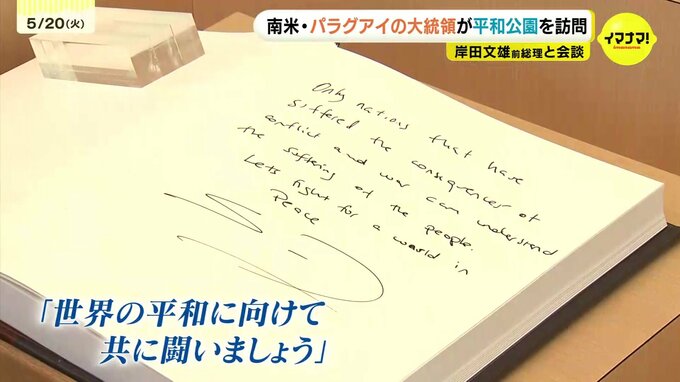 5/20(火)
南米・パラグアイの大統領が平和公園を訪問
岸田文雄前総理と会談
イマナマ!
Only nations that have
suffered the consequences of
conflict and war can understand
the suffering of the people.
Lets fight for a world in
Peace
「世界の平和に向けて
共に闘いましょう」